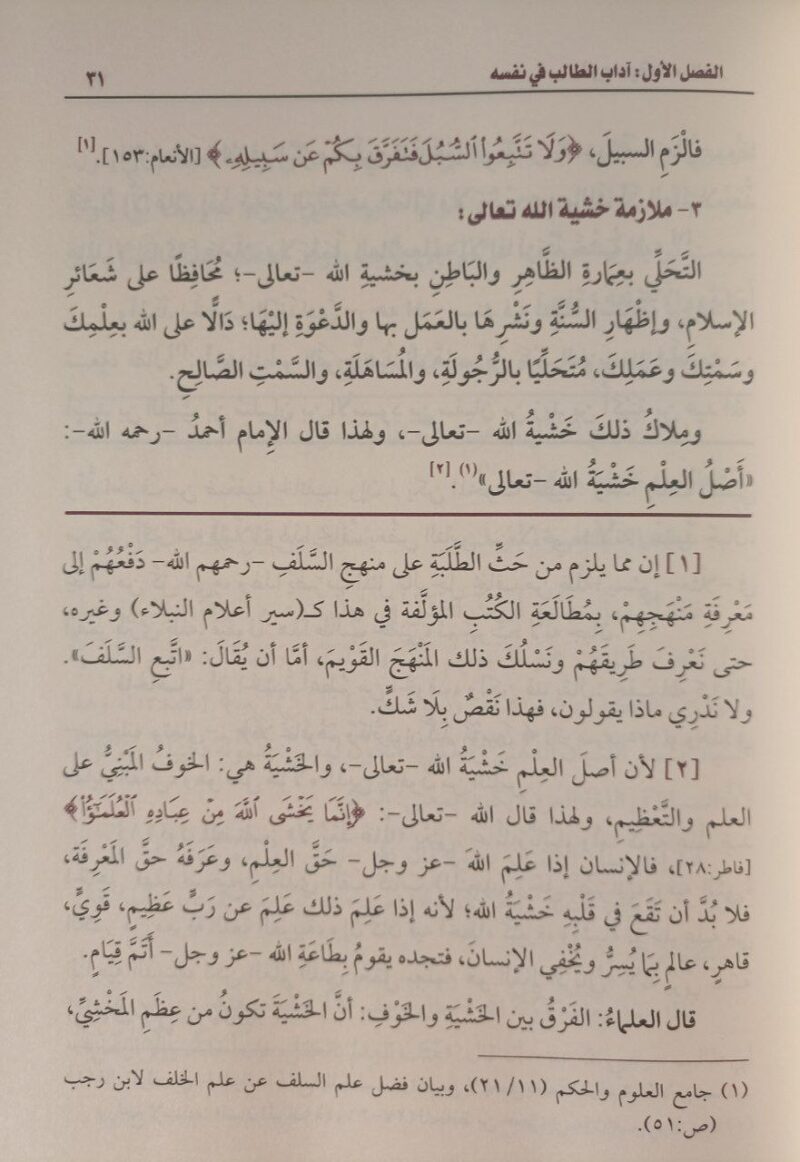 الفصل الأول: آداب الطالب في نفسه ٣١
فالْزَمِ السبيلَ، ﴿وَلَا تَتَّبِعُوا۟ ٱلسُّبُلَ فَتَفَرَّقَ بِكُمْ عَن سَبِيلِهِۦ﴾ [الأنعام:١٥٣].[١]
٣- ملازمة خشية الله تعالى:
التَّحَلِّي بعِمارةِ الظَّاهِرِ والبَاطِنِ بخشيةِ الله –تعالى–؛ مُحَافِظًا على شَعَائرِ
الإسلامِ، وإظْهَارِ السُّنَّةِ ونَشْرِهَا بالعَمَل بها والدَّعْوَةِ إليْهَا؛ دَالًّا على الله بعِلْمِكَ
وسَمْتِكَ وعَمَلِكَ، مُتَحَلِّيًا بالرُّجُولَةِ، والمُسَاهَلَةِ، والسَّمْتِ الصَّالِحِ.
ومِلاكُ ذلكَ خَشْيةُ الله –تعالى–، ولهذا قال الإمام أحمدُ –رحمه الله–:
«أَصْلُ العِلْمِ خَشْيَةُ الله –تعالى»(١).[٢]
[١] إن مما يلزم من حَثِّ الطَّلَبَةِ على منهجِ السَّلَفِ –رحمهم الله– دَفْعُهُمْ إلى
مَعْرِفَةِ مَنْهَجِهِمْ، بِمُطَالَعَةِ الكُتُبِ المؤلَّفة في هذا كـ(سير أعلام النبلاء) وغيره،
حتى نَعْرِفَ طَرِيقَهُمْ ونَسْلُكَ ذلك المَنْهَجَ القَوْيمَ، أمَّا أن يُقَالَ: «اتَّبِعِ السَّلَفَ».
ولا نَدْرِي ماذا يقولون، فهذا نَقْصٌ بِلَا شَكٍّ.
[٢] لأن أصلَ العِلْمِ خَشْيَةُ الله –تعالى–، والخَشْيَةُ هي: الخوفُ المَبْنِيُّ على
العلم والتَّعْظِيمِ، ولهذا قال الله –تعالى–: ﴿إِنَّمَا يَخْشَى ٱللَّهَ مِنْ عِبَادِهِ ٱلْعُلَمَـٰٓؤُا۟﴾
[فاطر:٢٨]، فالإنسان إذا عَلِمَ اللهَ –عز وجل– حَقَّ العِلْمِ، وعَرَفَهُ حقَّ المَعْرِفَة،
فلا بُدَّ أن تَقَعَ في قَلْبِهِ خَشْيَةُ الله؛ لأنه إذا عَلِمَ ذلك عَلِمَ عن رَبٍّ عَظِيمٍ، قَوِيٍّ،
قاهرٍ، عالمٍ بِمَا يُسِرُّ ويُخْفِي الإنسانَ، فتجده يقومُ بِطَاعَةِ الله –عز وجل– أَتَمَّ قِيَامٍ.
قال العلماءُ: الفَرْقُ بين الخَشْيَةِ والخَوْفِ: أنَّ الخَشْيَةَ تكونُ من عِظَمِ المَخْشِيِّ،
(١) جامع العلوم والحكم (٢١/١١)، وبيان فضل علم السلف عن علم الخلف لابن رجب
(ص:٥١).